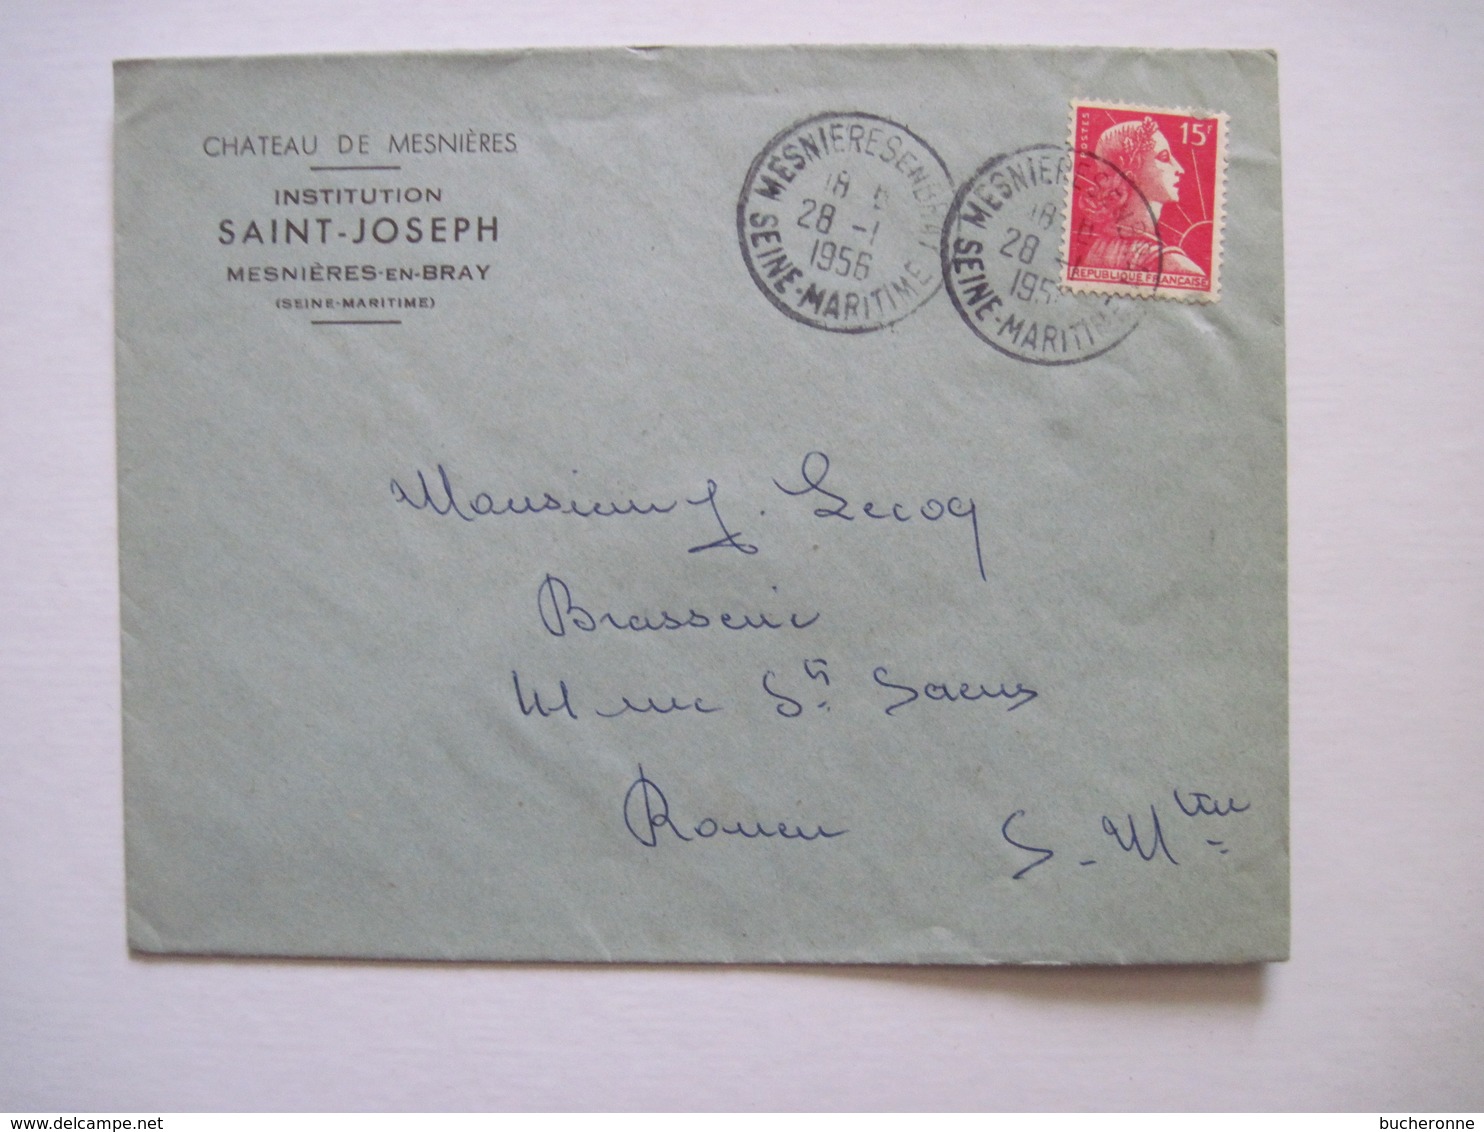 CHATEAU DE MESNIÈRES
INSTITUTION
SAINT-JOSEPH
MESNIÈRES-EN-BRAY
(SEINE-MARITIME)
MESNIERES EN BRAY
18
28 -1
1956
SEINE-MARITIME
MESNIERES EN BRAY
18
28 -1
195
SEINE-MARITIME
POSTES
15F
REPUBLIQUE FRANÇAISE
Monsieur J. Lecoq
Brasserie
rue St Saens
Rouen
S-Mtime
© delcampe.net
bucheronne